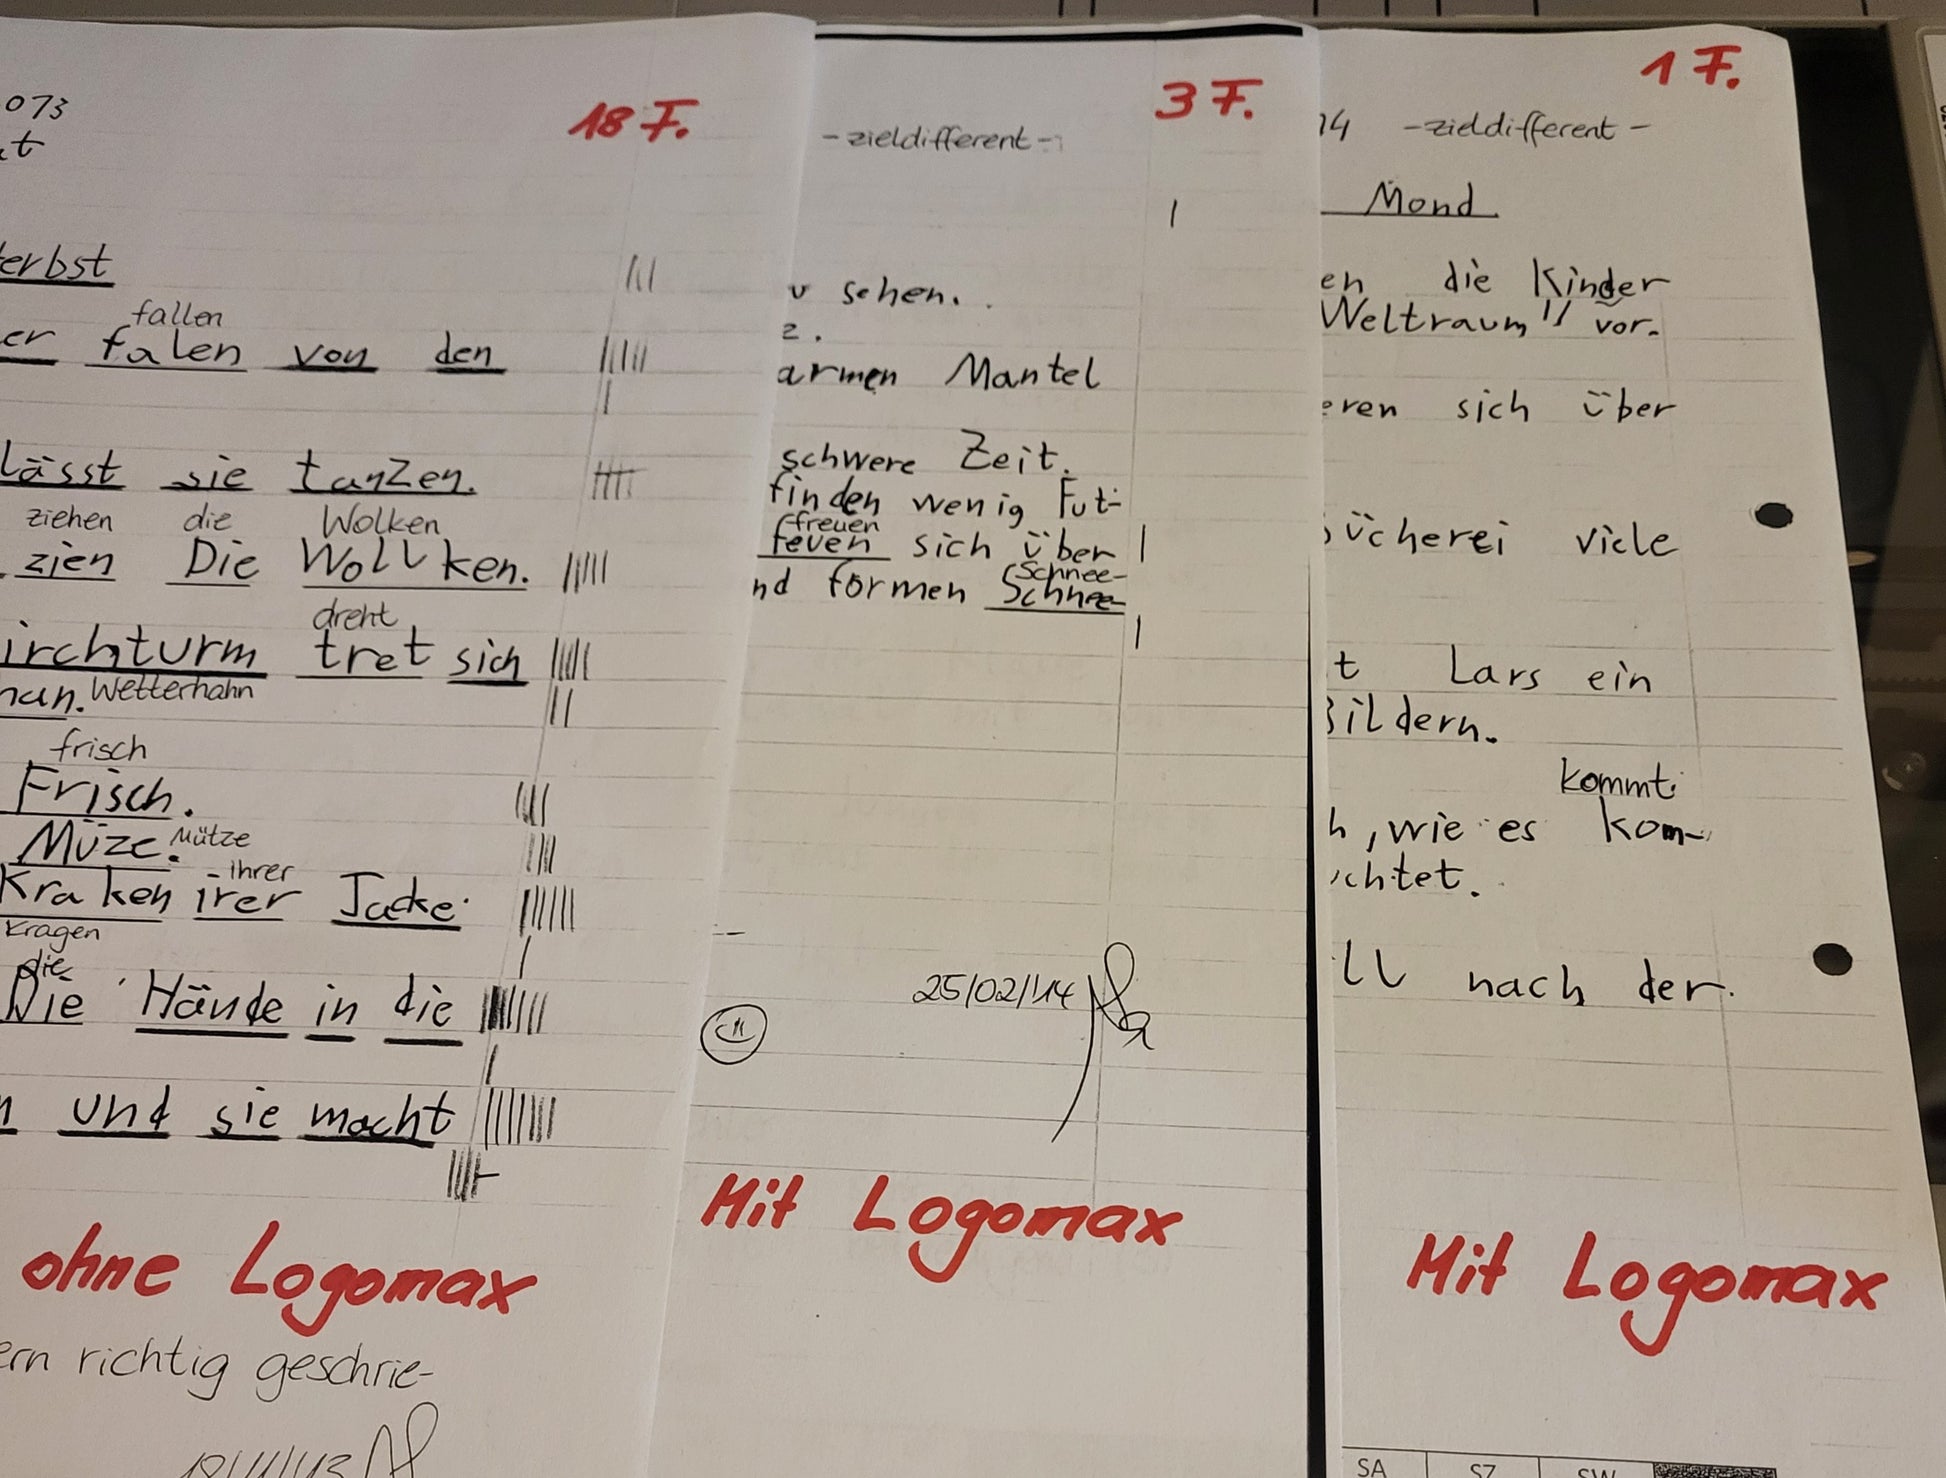 073
18 F.
erbst
fallen
er falen von den
lässt sie tanzen.
ziehen die Wolken
zien Die Wollken.
dreht
irchturm tret sich
han. Wetterhahn
frisch
Frisch.
Müze. Mütze
ihrer
Kraken irer Jacke.
Kragen
die
Die Hände in die
und sie macht
ohne Logomax
ern richtig geschrie-
3 F.
- zieldifferent -
sehen.
z.
armen Mantel
schwere Zeit.
finden wenig Fut-
freuen
feuen sich über
Schnee-
nd formen Schnee-
25/02/14
Mit Logomax
1 F.
14 - zieldifferent -
Mond
en die Kinder
Weltraum" vor.
eren sich über
ücherei viele
t Lars ein
Bildern.
kommt
h, wie es kom-
chtet.
ll nach der.
Mit Logomax
SA SZ SW